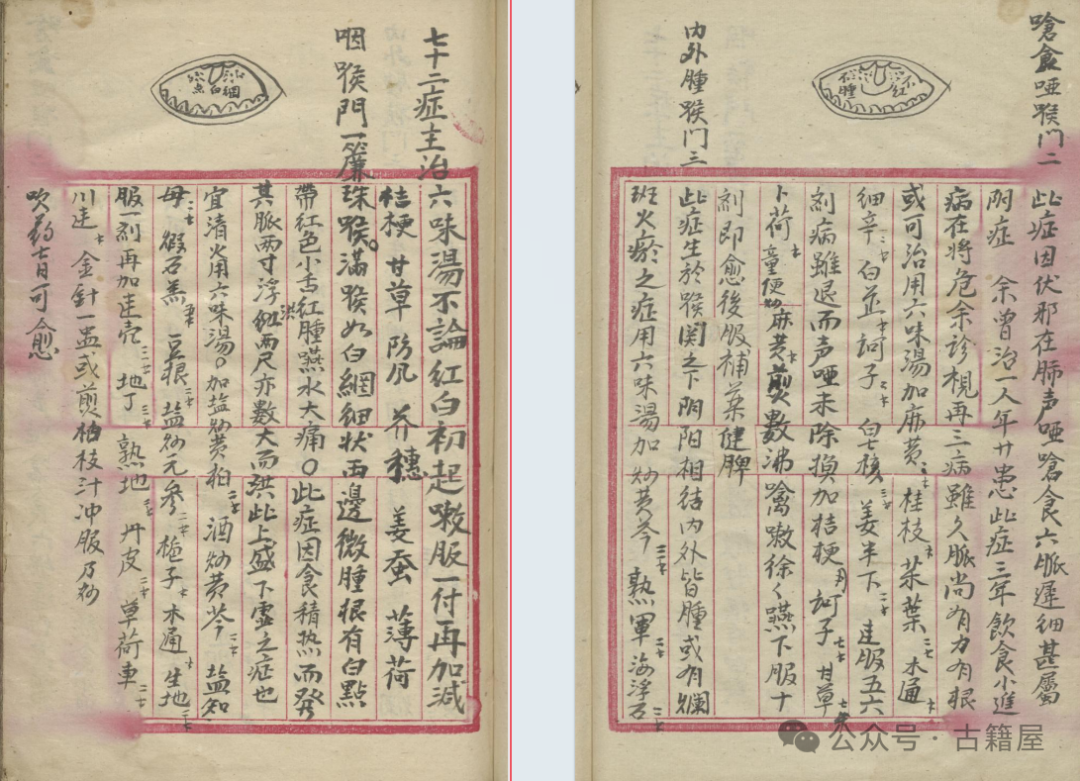 七十二症主治
六味湯不論紅白初起嗽服一付再加減
桔梗 甘草 防风 芥穗 姜蚕 薄荷
咽喉門一簾
珠喉○滿喉如白網細状両邊微腫根有白點
帶紅色小舌紅腫嚥水大痛○此症因食積热而發
其脈两寸浮洪两尺亦數大而洪此上盛下虚之症也
宜清火用六味湯○加盐炒黄柏二十 酒炒黄芩二十 盐知
母二十 煅石羔 豆根二十 盐炒元参二十 栀子 木通 生地
服一剂再加連壳三十 地丁三十 熟地 丹皮二十 草荷車二十
川連 金針一盅或煎柏枝汁冲服乃妙
吹药七日可愈
細白点
嗆食哑喉门二
此症因伏邪在肺声哑嗆食六脈遲細甚屬
阴症 余曾治一人年廿患此症三年飲食小進
病在將危余诊視再三病雖久脈尚有力有根
或可治用六味湯加麻黄 桂枝 茱葉 木通
細辛 白芷 訶子 白七核 姜半下 連服五六
剂病雖退而声哑未除損加桔梗 訶子 甘草
卜荷 童便炒麻黄煎數沸噙漱徐々嚥下服十
剂即愈後服補薬健脾
内外腫喉门三
此症生於喉関之下阴阳相结内外皆腫或有爛
斑火瘀之症用六味湯加炒黄芩 熟軍 海浮石
小紅
腫
公众号·古籍屋